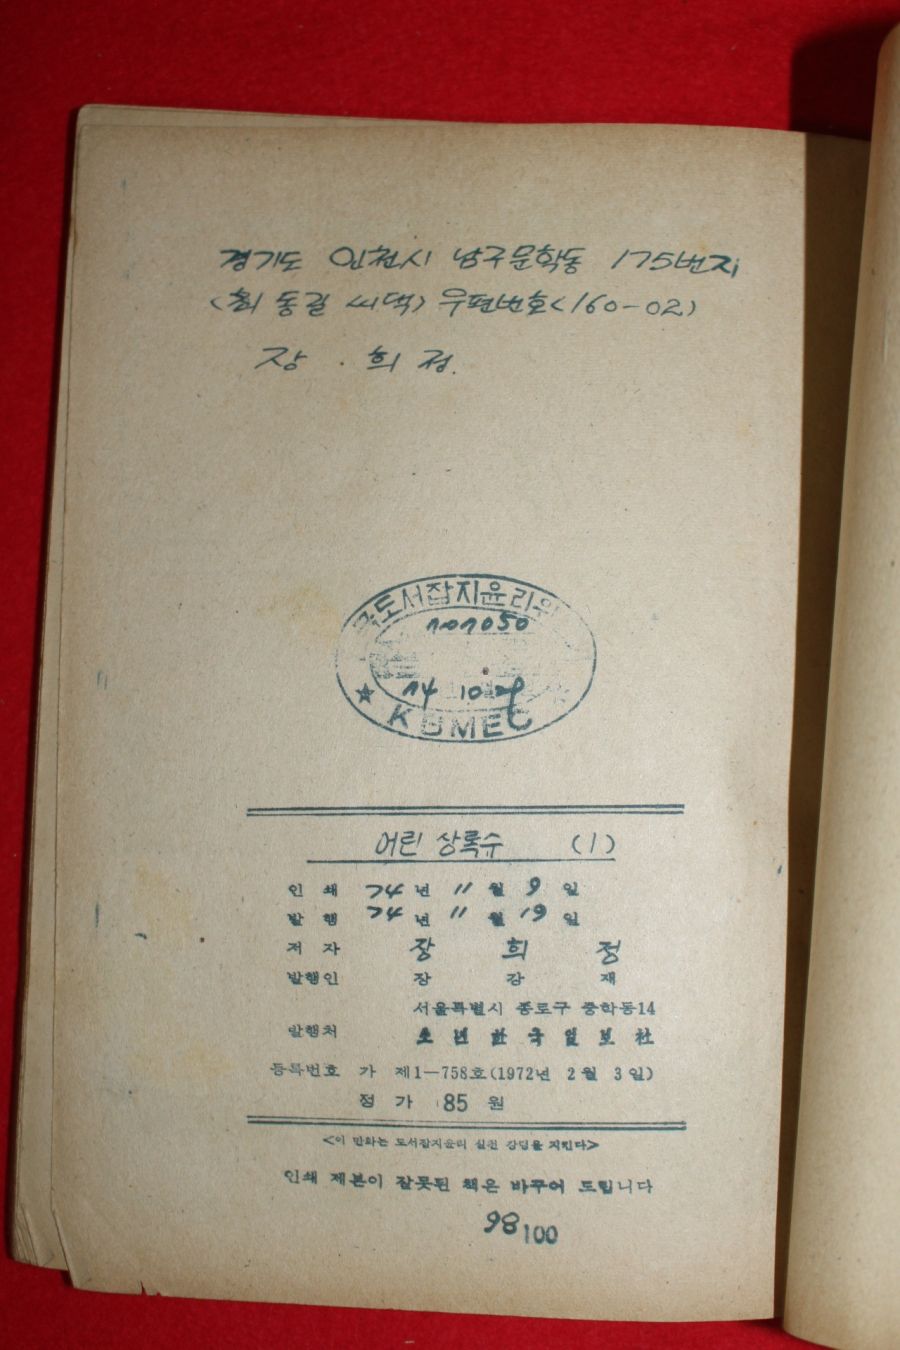 경기도 인천시 남구문학동 175번지
(최 동길 씨댁) 우편번호<160-02)
장 . 희 정.
국도서잡지윤리위
101050
74 10
KBMEC
어린 상록수 (1)
인 쇄 74년 11월 9일
발 행 74년 11월 19일
저 자 장 희 정
발행인 장 강 재
서울특별시 종로구 중학동14
발행처 소년한국일보社
등록번호 가 제1—758호(1972년 2월 3일)
정 가 85 원
<이 만화는 도서잡지윤리 실천 강령을 지킨다>
인쇄 제본이 잘못된 책은 바꾸어 드립니다
98 100